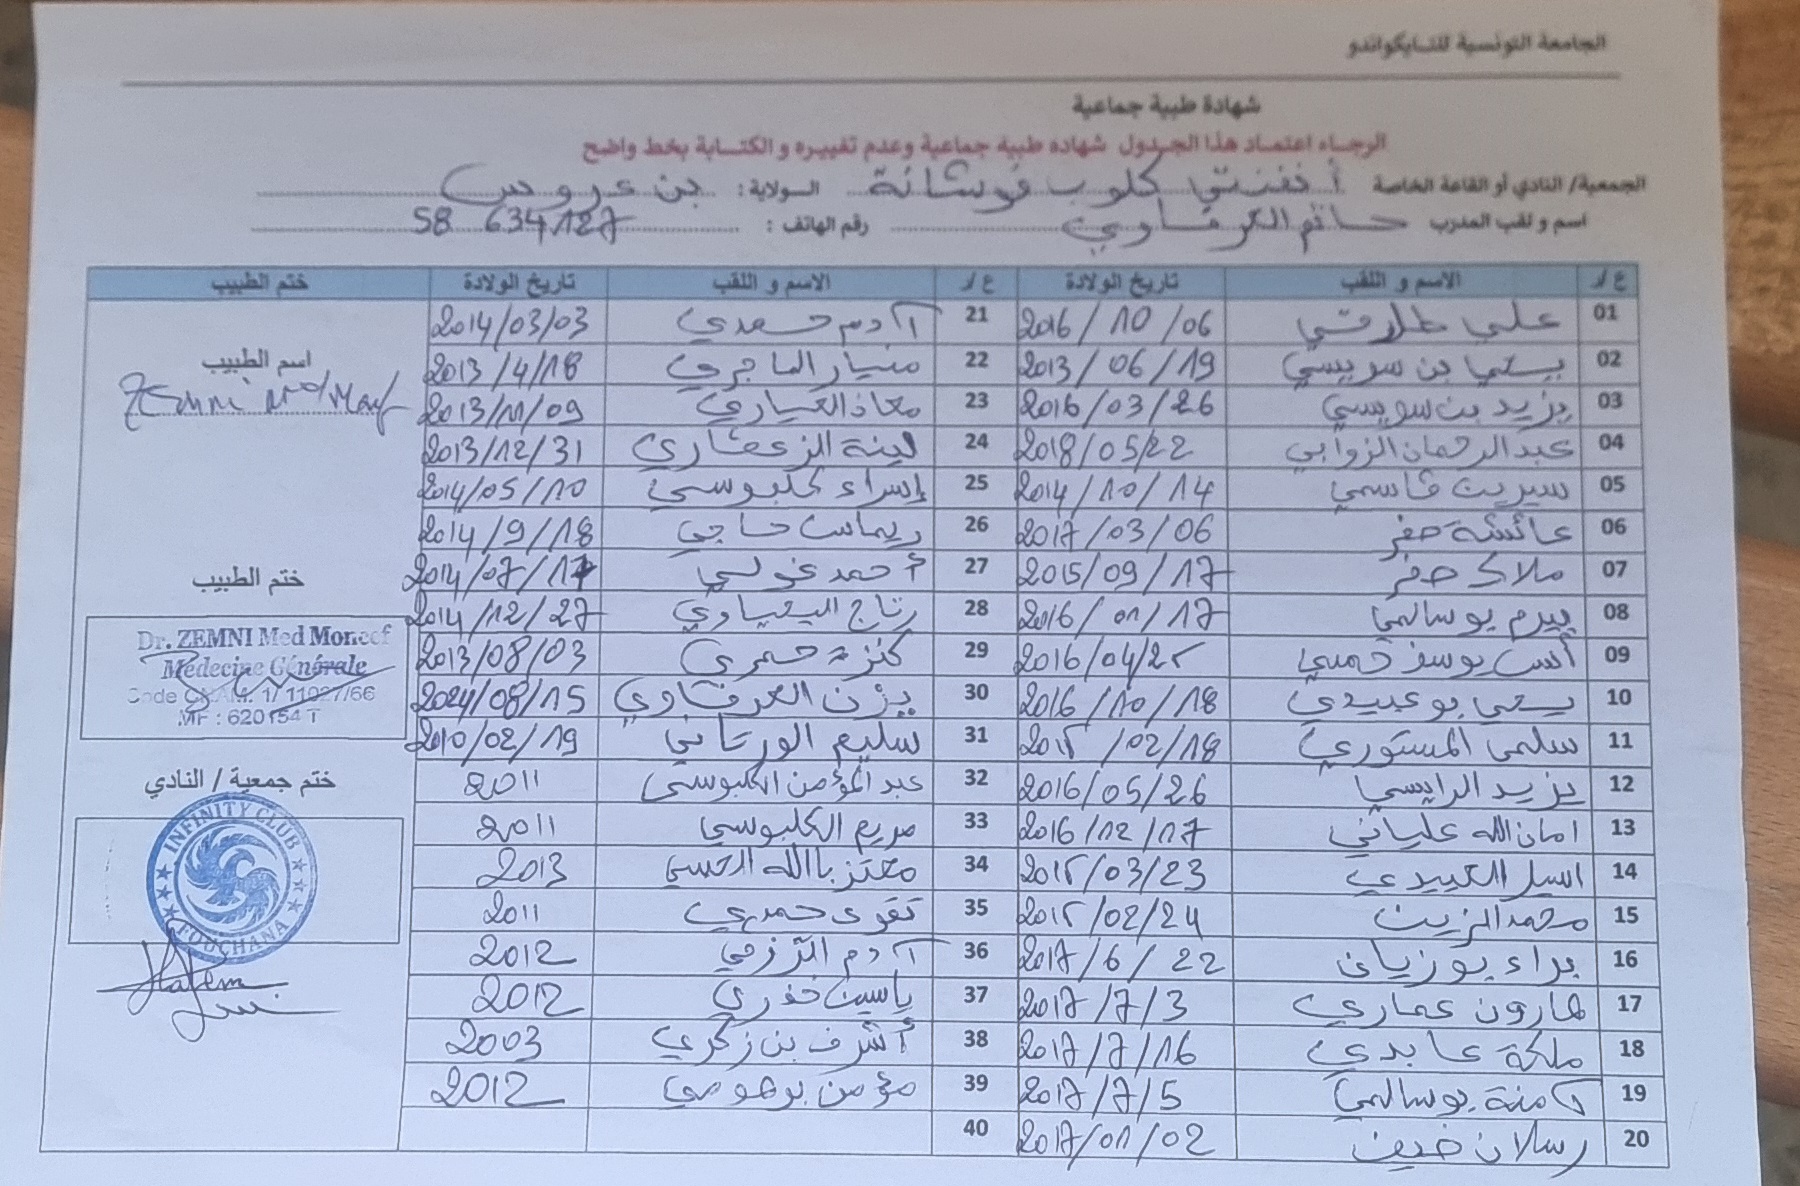 الجامعة التونسية للتايكواندو
شهادة طبية جماعية
الرجاء اعتماد هذا الجدول شهاده طبية جماعية وعدم تغييره و الكتابة بخط واضح
الجمعية/ النادي أو القاعة الخاصة أنفنتي كلوب فوشانة الولاية: بن عروس
اسم و لقب المدرب حاتم العرفاوي رقم الهاتف: 58 634 127
ع/ر الاسم و اللقب تاريخ الولادة ع/ر الاسم و اللقب تاريخ الولادة ختم الطبيب
01 علي طلارقي 2016/10/06 21 آدم حمدي 2014/03/03
02 يحي بن سويسي 2013/06/19 22 منيار الماجري 2013/4/18
اسم الطبيب
Zemni Med Moncef
03 يزيد بن سويسي 2016/03/26 23 معاذ العياري 2013/11/09
04 عبد الرحمان الزوابي 2018/05/22 24 لينة الزعفاري 2013/12/31
05 سيرين قاسمي 2014/10/14 25 إسراء كلبوسي 2014/05/10
06 عائشة صفر 2017/03/06 26 ريماس حاجي 2014/9/18
07 ملاك صفر 2015/09/17 27 أحمد غولي 2014/07/17
ختم الطبيب
08 بيرم بوسالمي 2016/01/17 28 رتاج اليحياوي 2014/12/27
09 أنس يوسف خميري 2016/04/25 29 كنزة حمري 2013/08/03
10 يحي بوعبيدي 2016/10/18 30 يزن العرفاوي 2024/08/15
Dr. ZEMNI Med Moncef
Médecine Générale
Code CNAM: 1/11027/66
MF : 620154 T
11 سلمى المستوري 2015/02/18 31 سليم الورتاني 2010/02/19
12 يزيد الرايسي 2016/05/26 32 عبد المؤمن الكلبوسي 2011
ختم جمعية / النادي
13 امان الله علياني 2016/12/17 33 مريم الكلبوسي 2011
14 اسيل العبيدي 2015/03/23 34 معتز باالله الحسي 2013
15 محمد الزين 2015/02/24 35 تقوى حمدي 2011
INFINITY CLUB
FOUCHANA
16 براء بوزيان 2017/6/22 36 آدم الترزي 2012
17 هارون عماري 2017/7/3 37 ياسين خذري 2012
Hatem
18 ملكة عابدي 2017/7/16 38 أشرف بن زكري 2003
19 آمنة بوسالمي 2017/7/5 39 مؤمن برهومي 2012
20 رسلان ضيف 2017/01/02 40